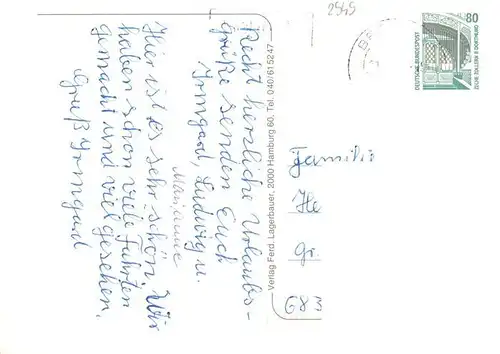 2949
80
DEUTSCHE BUNDESPOST
ZECHE ZOLLERN II DORTMUND
Recht herzliche Urlaubs-
grüße senden Euch
Irmgard, Ludwig u.
Marianne
Hier ist es sehr schön, Wir
haben schon viele Fahrten
gemacht und viel gesehen,
Gruß Irmgard
Verlag Ferd. Lagerbauer, 2000 Hamburg 60, Tel. 040/615247
Familie
He
Gr.
683